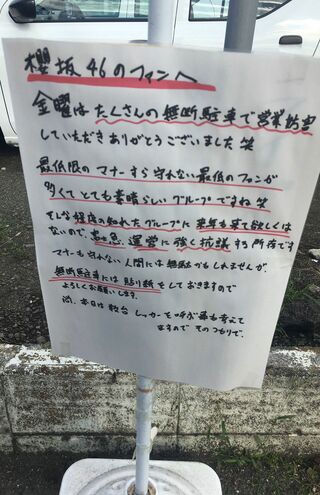 櫻坂46のファンへ
金曜はたくさんの無断駐車で営業妨害
していただきありがとうございました笑
最低限のマナーすら守れない最低のファンが
多くてとても素晴らしいグループですね笑
そんな程度の知れたグループに来年も来て欲しくは
ないので、至急、運営に強く抗議する所存です
マナーも守れない人間には無駄かもしれませんが、
無断駐車には貼紙をしておきますので
よろしくお願いします。
尚、本日は数台レッカーを呼ぶ事も考えて
ますのでそのつもりで。